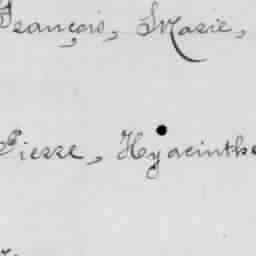 François, Marie,
Pierre, Hyacinthe